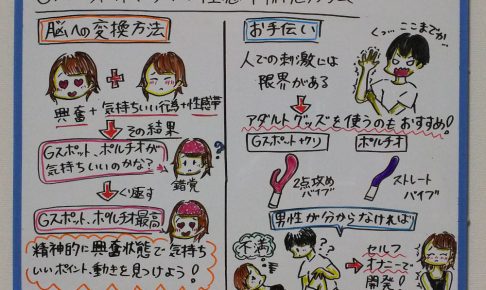 脳への変換方法
興奮+気持ちいい行為+性感帯
その結果
Gスポット、ポルチオが
気持ちいいのかな?
?
錯覚
くり返す
Gスポット、ポルチオ最高
精神的に興奮状態で気持ち
いいポイント、動きを見つけよう!
お手伝い
人での刺激には
限界がある
くっ…ここまでか…
アダルトグッズを使うのもおすすめ!
Gスポット+クリ
ポルチオ
2点攻め
バイブ
ストレート
バイブ
男性が分からなければ
不満
??
セルフ
オナニーで
開発!